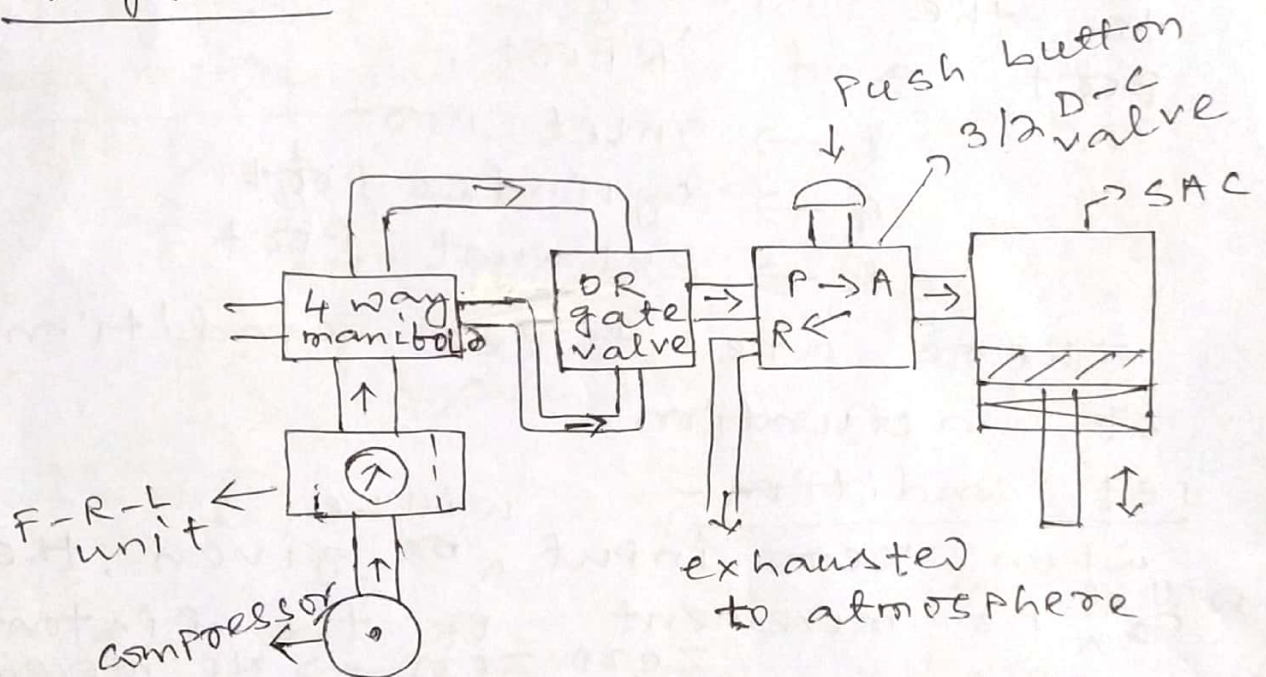 push button
3/2 D-C
valve
SAC
4 way
manifold
OR
gate
valve
P → A
R ←
F-R-L
unit
compressor
exhausted
to atmosphere